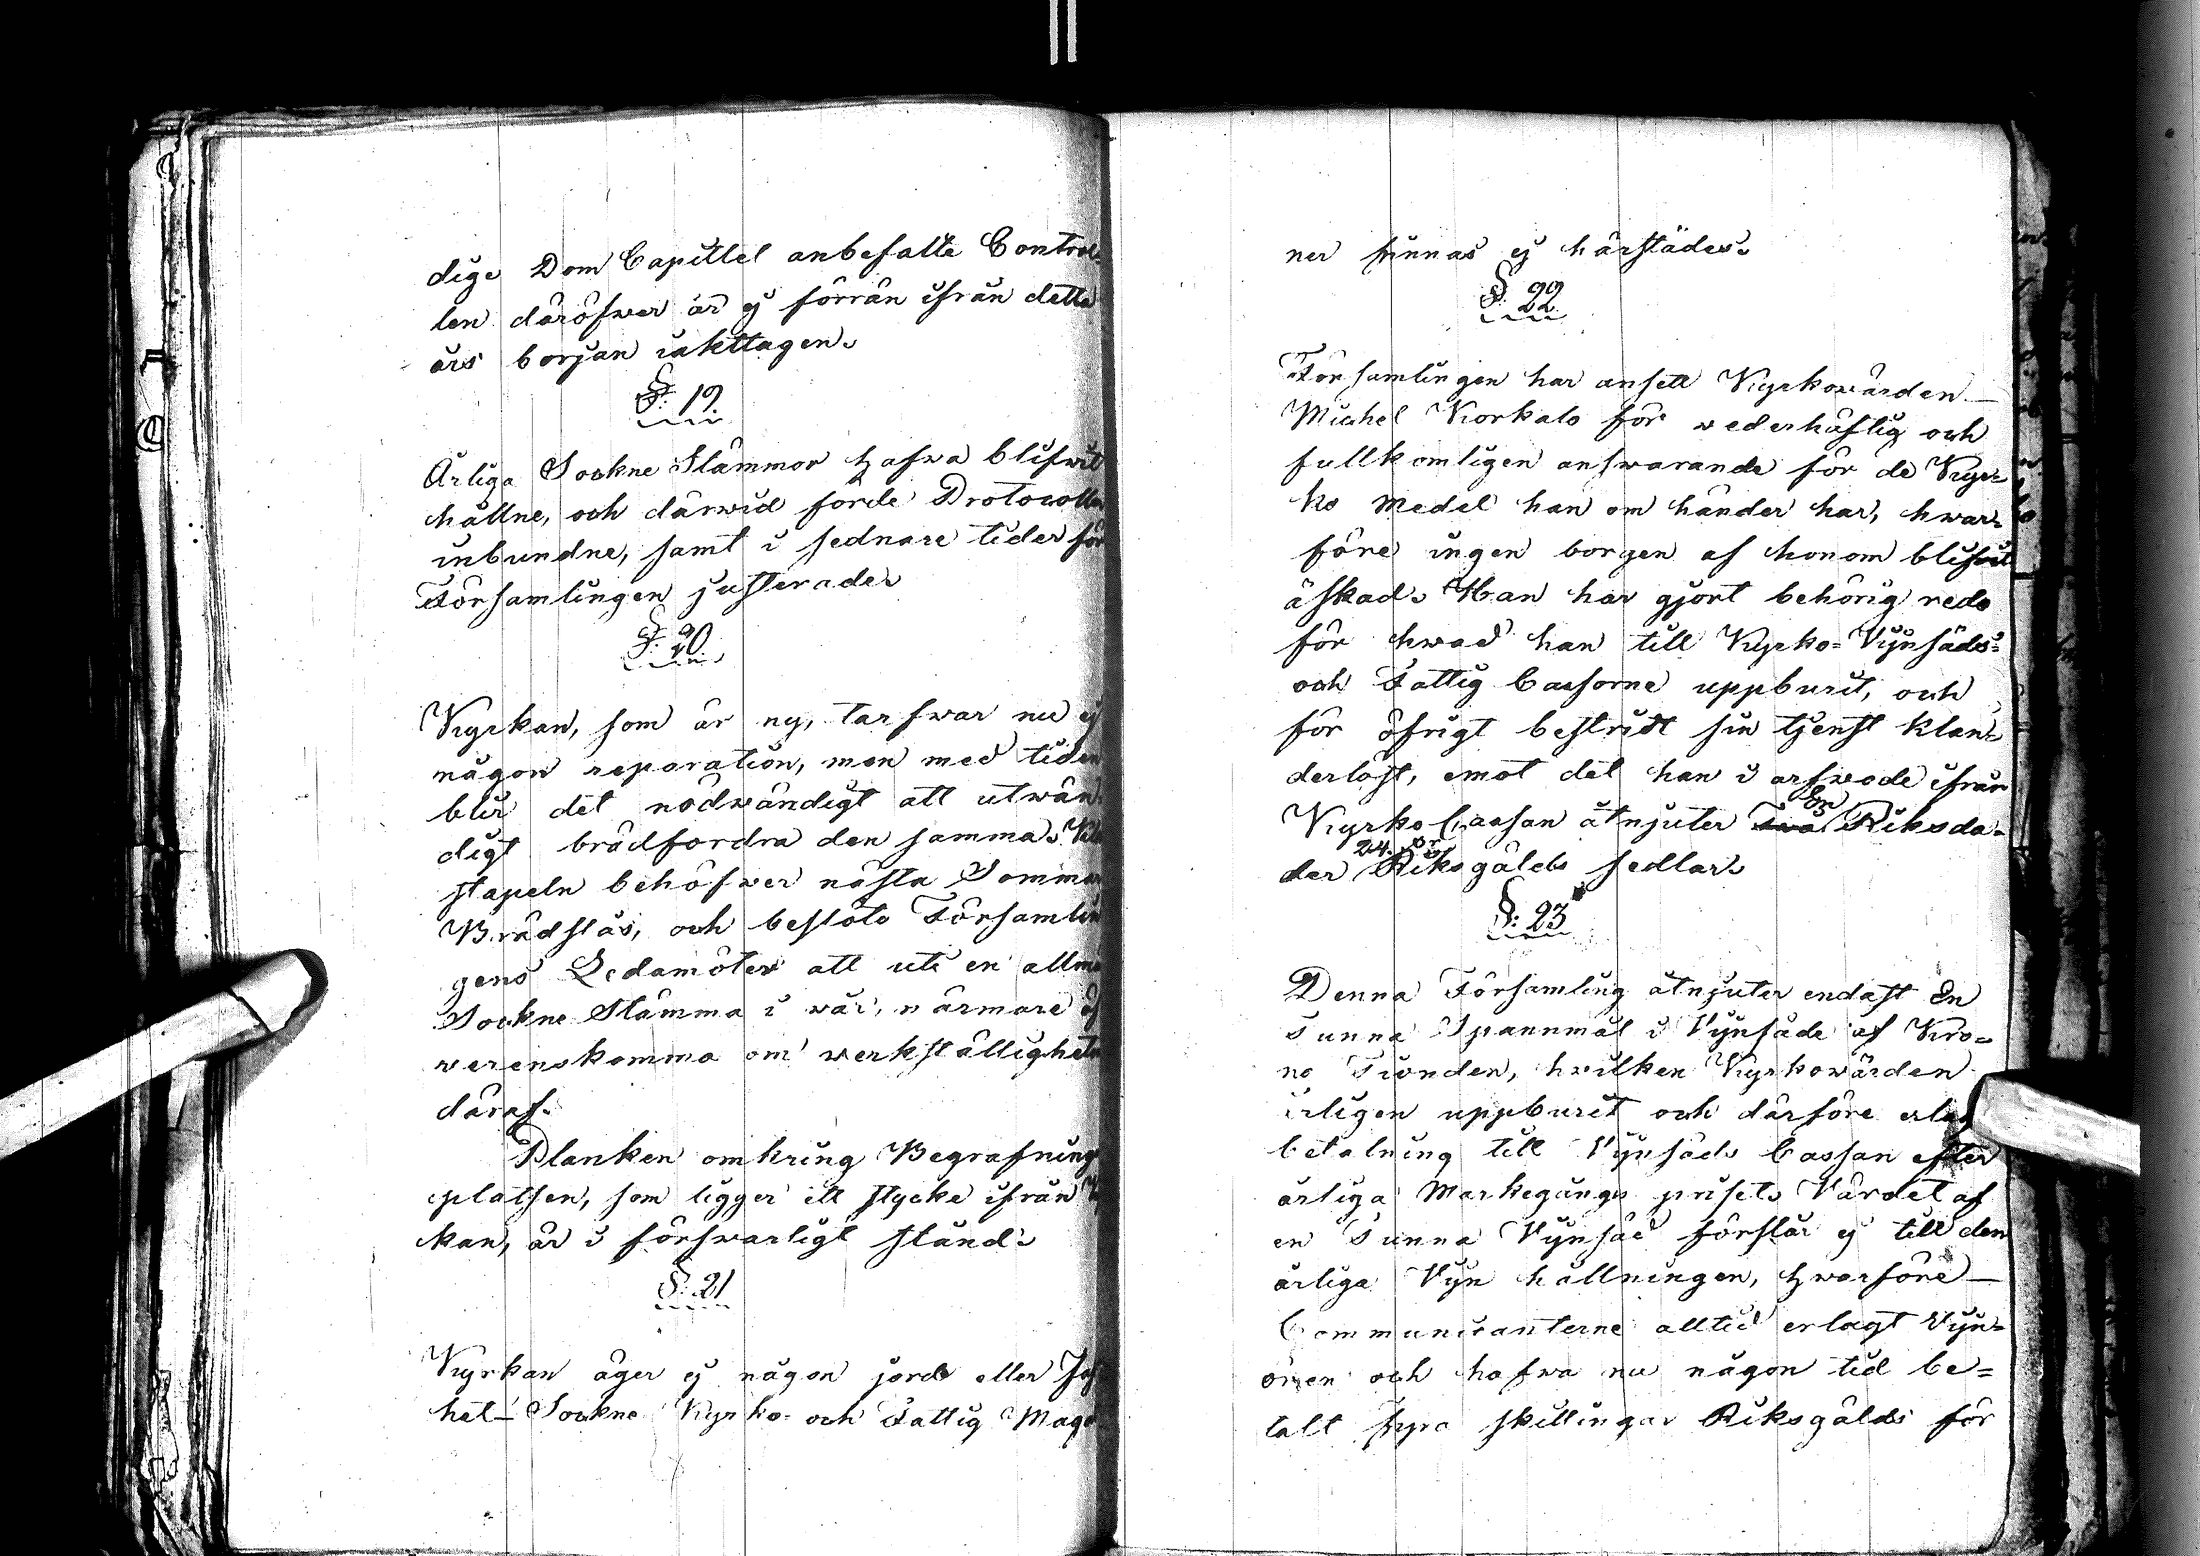 dige Dom Capittel anbefalte Control-
len däröfwer är ej förrän ifrån detta
års början iakttagen.
§. 19.
Årliga Sockne Stämmor hafwa blifwit
hållne, och därwid förde Protocoller
inbundne, samt i sednare tider för
Församlingen justerade.
§. 20.
Kyrkan, som är ny, tarfwar nu ej
någon reparation, men med tiden
blir det nödwändigt att utwän-
digt brädfordra den samma.
stapeln behöfwer nästa Sommar
Brädslås, och beslöto Församlin
gens Ledamöter att uti en allmän
Sockne Stämma i wår, närmare öf
verenskomma om werkställigheten
däraf.
Planken omkring Begrafnings
platsen, som ligger ett stycke ifrån Kyr
kan, är i förswarligt stånd.
§. 21
Kyrkan äger ej någon jord eller
het. Sockne Kyrko- och Fattig Maga
ner finnas ej härstädes.
§. 22.
Församlingen har ansett Kyrkowärden
Michel Korkalo för wederhäftig och
fullkomligen answarande för de Kyr-
ko Medel han om händer har, hwar-
före ingen borgen af honom blifwit
äskad. Han har gjort behörig redo
för hwad han till Kyrko- Vijnsäds-
och Fattig Cassorne uppburit, och
för öfrigt bestridt sin tjenst klan-
derlöst, emot det han i arfwode ifrån
Kyrko Cassan åtnjuter Två En Riksda-
der 24. ör Riksgälds sedlar.
§. 23
Denna Församling åtnjuter endast En
Tunna Spannmål i Vijnsäde af Kro-
no Tionden, hvilken Kyrkowärden
årligen uppburit och därföre erlagt
betalning till Vijnsäds Cassan efter
årliga Markegångs priset. Värdet af
en Tunna Vijnsäd förslår ej till den
årliga Vijn hållningen, hwarföre
Communicanterne alltid erlagt Vijn-
ören och hafwa nu någon tid be-
talt fyra skillingar Riksgälds för